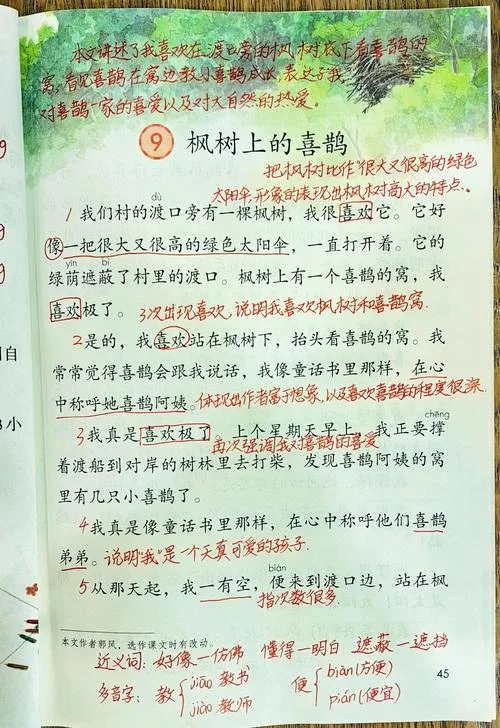 本文讲述了我喜欢在渡口旁的枫树底下看喜鹊的
窝,看见喜鹊在窝边教小喜鹊成长,表达了我
对喜鹊一家的喜爱以及对大自然的热爱。
9 枫树上的喜鹊
把枫树比作"很大又很高的绿色
太阳伞,形象的表现出枫树高大的特点。
dù
1 我们村的渡口旁有一棵枫树,我很喜欢它。它好
像一把很大又很高的绿色太阳伞,一直打开着。它的
yīn bì
绿荫遮蔽了村里的渡口。枫树上有一个喜鹊的窝,我
喜欢极了。 3次出现喜欢,说明我喜欢枫树和喜鹊窝.
2 是的,我喜欢站在枫树下,抬头看喜鹊的窝。我
常常觉得喜鹊会跟我说话,我像童话书里那样,在心
中称呼她喜鹊阿姨。 体现出作者富于想象,以及喜欢喜鹊的程度很深.
chēng
3 我真是喜欢极了。上个星期天早上,我正要撑
再次强调我对喜鹊的喜爱
着渡船到对岸的树林里去打柴,发现喜鹊阿姨的窝
里有几只小喜鹊了。
4 我真是像童话书里那样,在心中称呼他们喜鹊
弟弟。 说明"我"是一个天真可爱的孩子.
biàn
5 从那天起,我一有空,便来到渡口边,站在枫
指次数很多.
本文作者郭风,选作课文时有改动。
近义词: 好像—仿佛 懂得—明白 遮蔽—遮挡
多音字: 教 { jiāo 教书 便 { biàn (方便)
jiào 教师 pián (便宜)
45
自
小